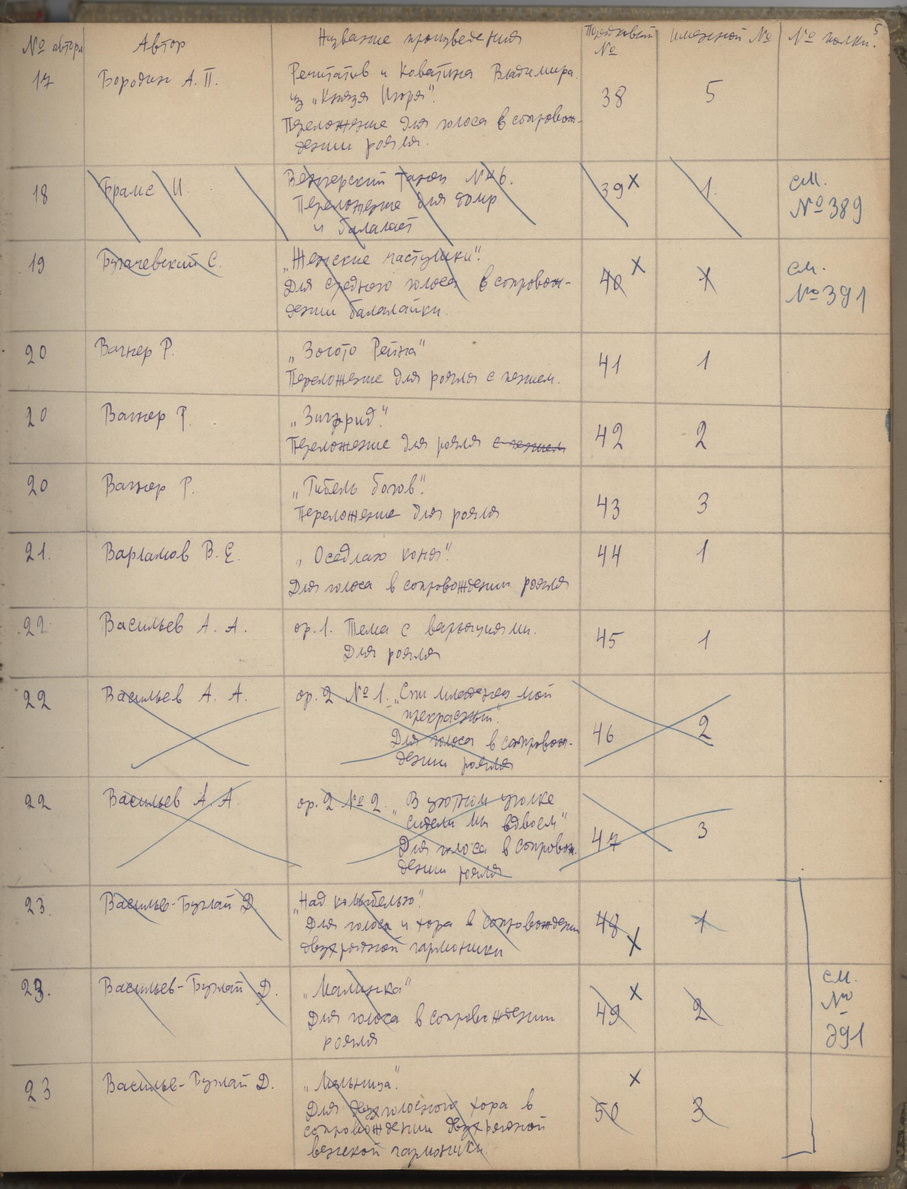 5
№ автора Автор Название произведения Порядковый № именной № № полки.
17 Бородин А. П. Речитатив и Каватина Владимира 38 5
из „Князя Игоря“.
Переложение для голоса в сопровож-
дении рояля.
18 Брамс И. Венгерский танец № 6. 39 x 1. см.
Переложение для домр № 389
и балалаек
19 Бугачевский С. „Женские частушки“. 40 x 1 см.
Для среднего голоса в сопровож- № 391
дении балалайки.
20 Вагнер Р. „Золото Рейна“ 41 1
Переложение для рояля с пением.
20 Вагнер Р. „Зигфрид“. 42 2
Переложение для рояля с пением
20 Вагнер Р. „Гибель богов“. 43 3
Переложение для рояля
21. Варламов В. Е. „Оседлаю коня“. 44 1
Для голоса в сопровождении рояля
22. Васильев А. А. ор. 1. Тема с вариациями. 45 1
Для рояля
22 Васильев А. А. ор. 2 № 1. „Спи младенец мой 46 2
прекрасный“.
Для голоса в сопровож-
дении рояля
22 Васильев А. А. ор. 2 № 2. „В уютном уголке 47 3
сидели мы вдвоем“
Для голоса в сопровож-
дении рояля
23. Васильев-Буглай Д „Над колыбелью“. 48 x 1
Для голоса и хора в сопровождении
двухрядной гармоники
23. Васильев-Буглай Д. „Малинка“ 49 x 2 см.
Для голоса в сопровождении №
рояля 391
23 Васильев-Буглай Д. „Мельница“. 50 x 3
Для двухголосного хора в
сопровождении двухрядной
венской гармоники.